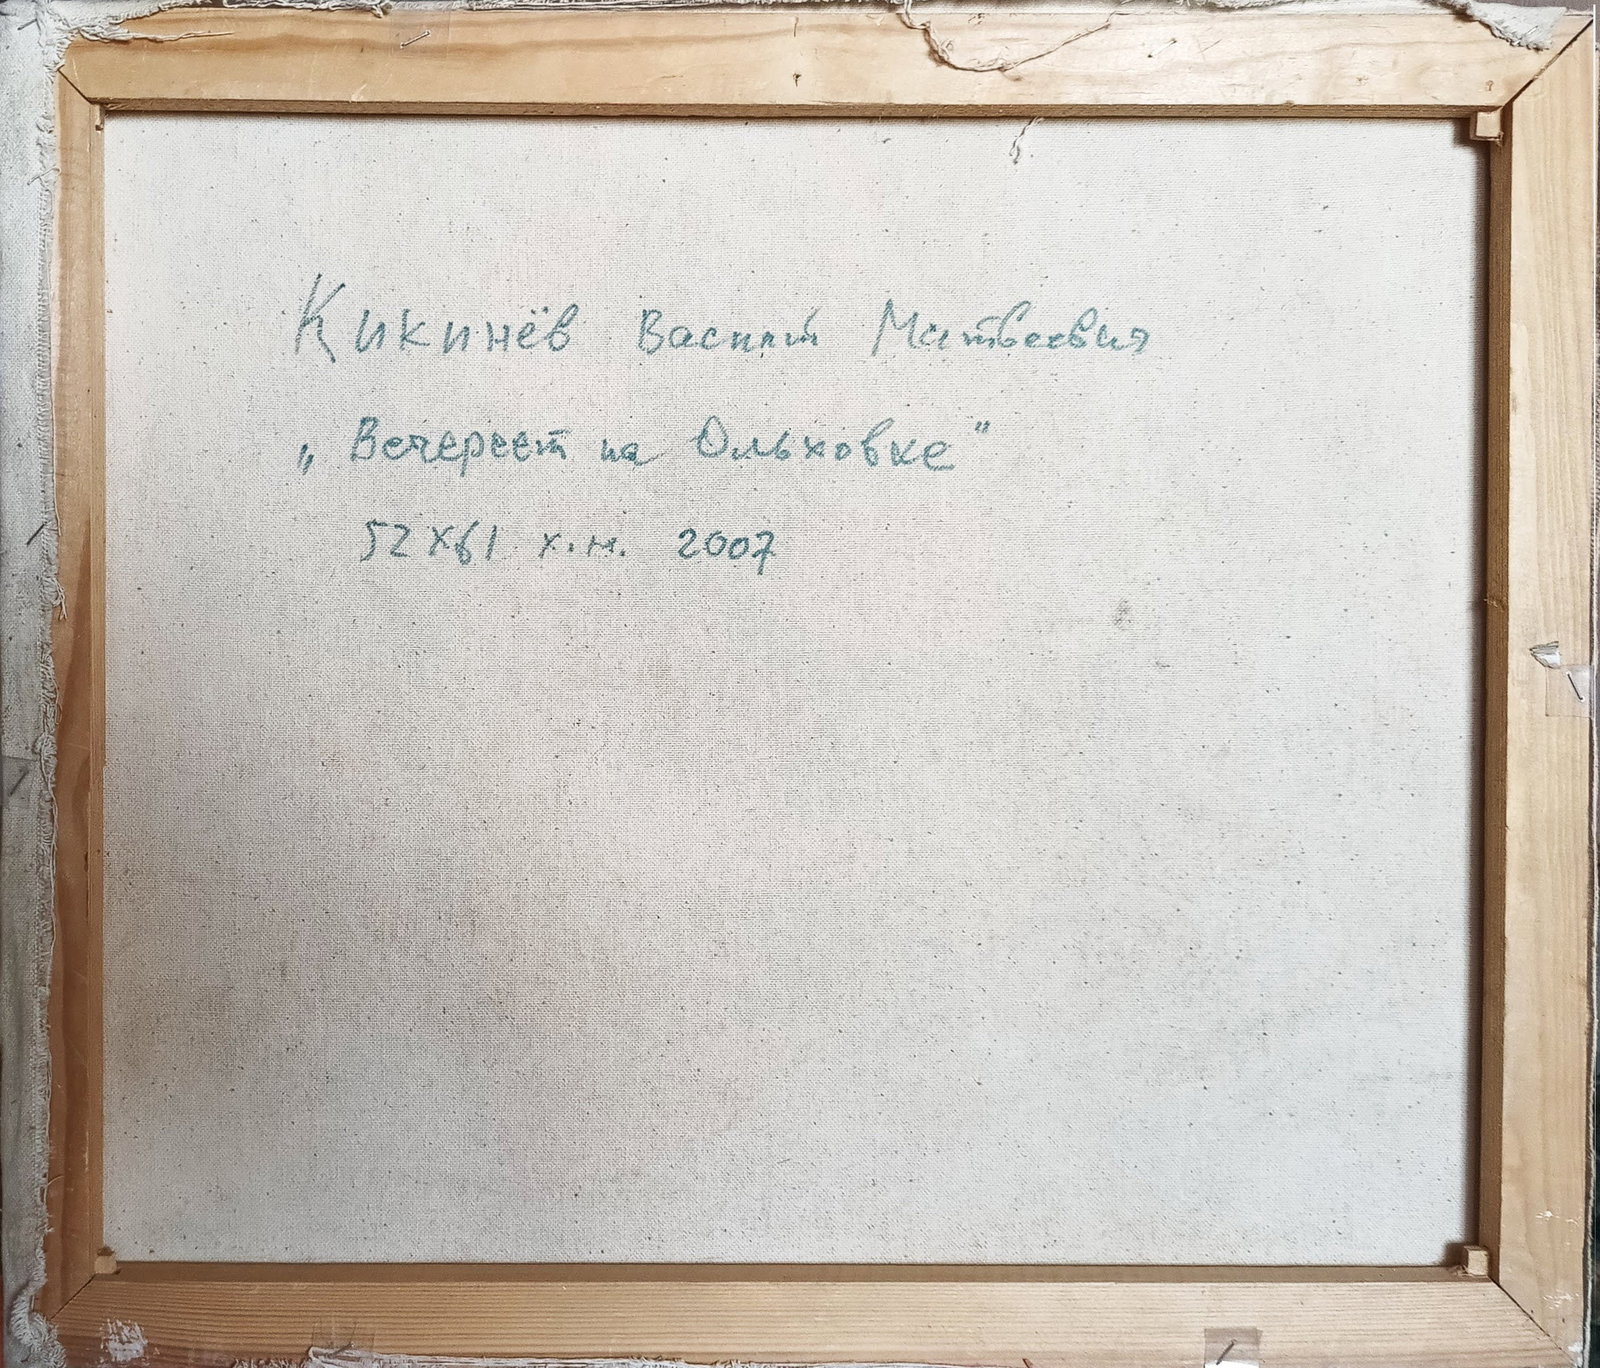 Кикинёв Василий Матвеевич
„Вечереет на Ольховке"
52х61 х.м. 2007